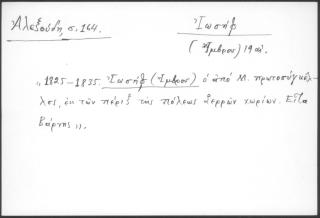 Ἀλεξούδη, σ. 164.
Ἰωσήφ
(Ἴμβρος) 19 αἰ.
„ 1825-1835. Ἰωσήφ (Ἴμβρος) ὁ ἀπό Μ. πρωτοσύγκελ-
λος, ἐκ τῶν πέριξ τῆς πόλεως Σερρῶν χωρίων. Εἶτα
Βάρνης „.